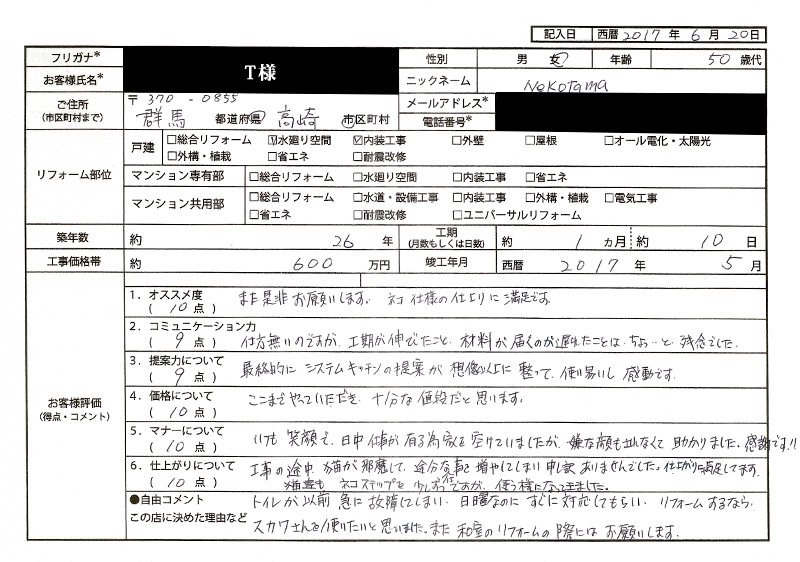 記入日 西暦 2017 年 6 月 20 日
フリガナ*
お客様氏名* T様
性別 男 女 年齢 50 歳代
ニックネーム Nekotama
ご住所 (市区町村まで) 〒 370 - 0855
群馬 都道府県 高崎 市区町村
メールアドレス*
電話番号*
リフォーム部位
戸建 □総合リフォーム ☑水廻り空間 ☑内装工事 □外壁 □屋根 □オール電化・太陽光
□外構・植栽 □省エネ □耐震改修
マンション専有部 □総合リフォーム □水廻り空間 □内装工事 □省エネ
マンション共用部 □総合リフォーム □水道・設備工事 □内装工事 □外構・植栽 □電気工事
□省エネ □耐震改修 □ユニバーサルリフォーム
築年数 約 26 年 工期 (月数もしくは日数) 約 1 ヵ月 約 10 日
工事価格帯 約 600 万円 竣工年月 西暦 2017 年 5 月
お客様評価 (得点・コメント)
1. オススメ度 ( 10 点 ) また是非お願いします。 ネコ仕様の仕上りに満足です。
2. コミュニケーション力 ( 9 点 ) 仕方無いのですが、工期が伸びたこと、材料が届くのが遅れたことは、ちょっと残念でした。
3. 提案力について ( 9 点 ) 最終的にシステムキッチンの提案が想像以上に整って、使い易いし感動です。
4. 価格について ( 10 点 ) ここまでやっていただき、十分な値段だと思います。
5. マナーについて ( 10 点 ) いつも笑顔で、日中仕事が有る為家を空けていましたが、嫌な顔も出なくて助かりました。感謝です!!
6. 仕上がりについて ( 10 点 ) 工事の途中 猫が邪魔して、余分な事を増やしてしまい申訳ありませんでした。仕上がりに満足してます。
猫達も ネコステップを少しずつですが、使う様になって来ました。
●自由コメント
この店に決めた理由など
トイレが以前 急に故障してしまい、日曜なのにすぐに対応してもらい、リフォームするなら、
スカワさんを使いたいと思いました。また和室のリフォームの際にはお願いします。